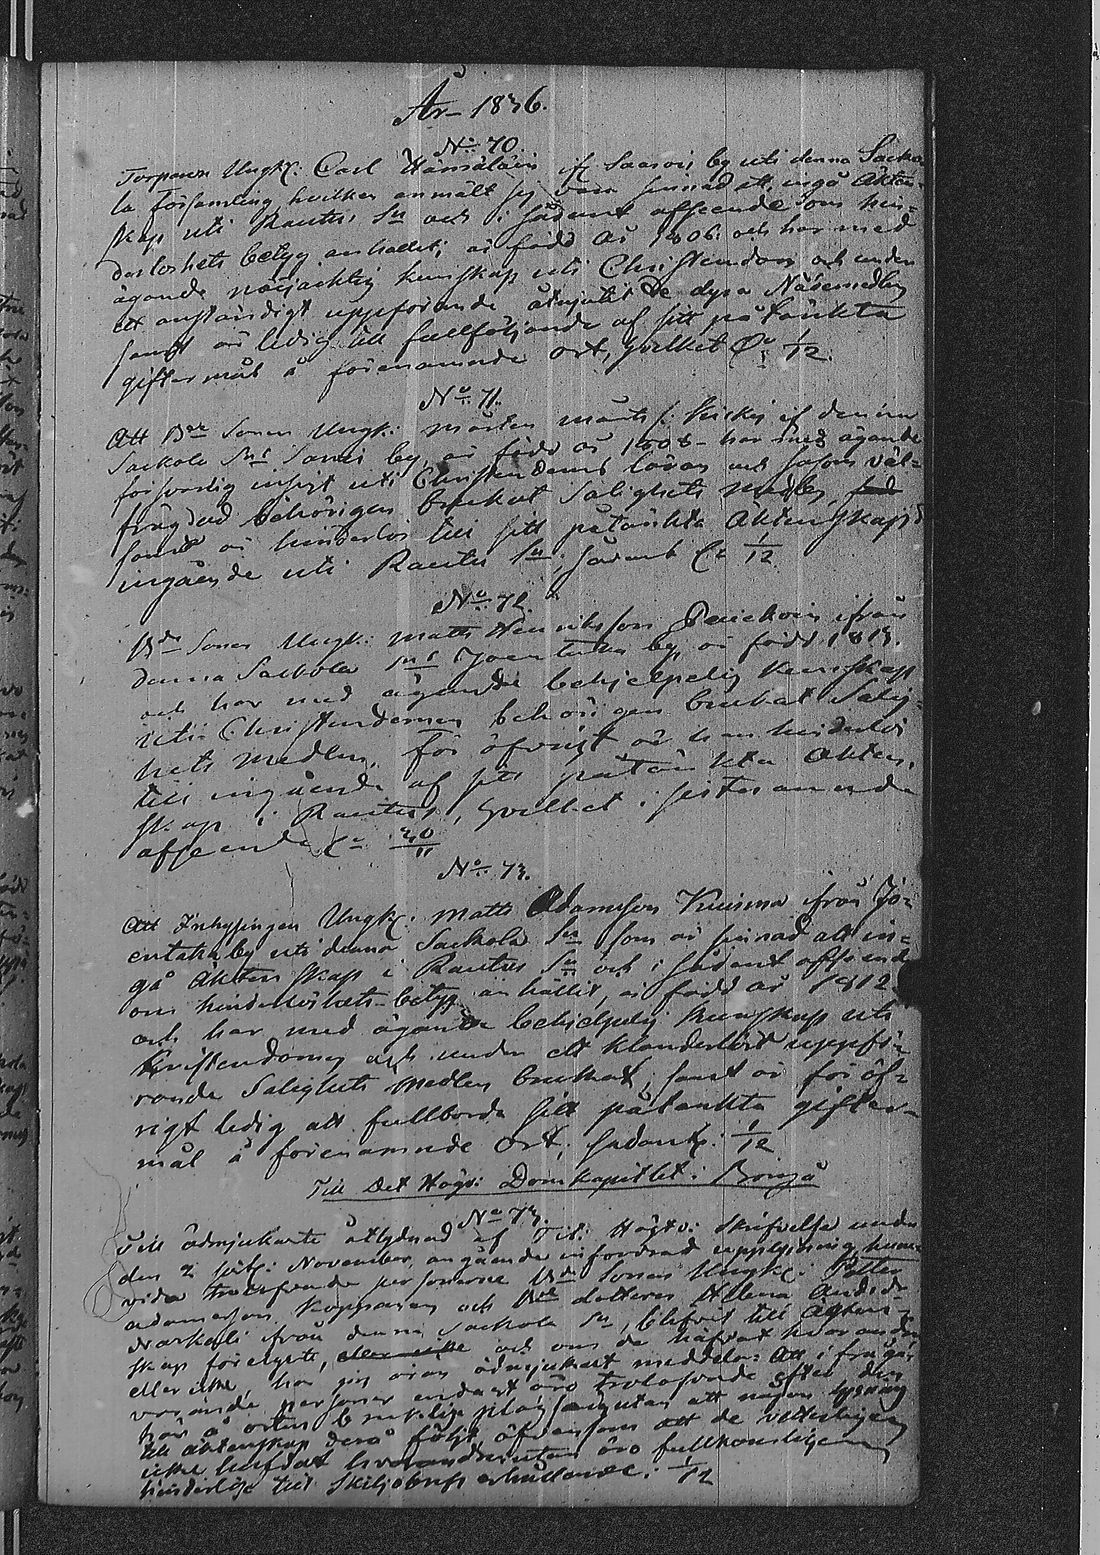 År 1836.
No 70.
Torparen Ungk: Carl Hämäläin if Saarois by uti denna Sacko-
la församling hvilken anmält sig vara sinnad att ingå Äkten-
skap uti Rautus Sn och i sådant afseende om hin-
derlöshets betyg anhållit; är född år 1806 och har med
ägande nöjachtig kunskap uti Christendom och under
ett anständigt uppförande åtnjutit De dyra Nådemedlen
samt är ledig till fullföljande af sitt påtänkta
giftermål å förenämnde ort, hvilket 1/12.
No 71.
Att Bde Sonen Ungk: Mårten Mårts s: if denna
Sackola Sns by är född år 1808 har med ägande
försvarlig insigt uti Christendoms läran och såsom väl-
frägdad behörigen brukat Salighets medlen,
samt är hinderlös till sitt påtänkta Äktenskaps
ingående uti Rautus Sn; sådant 1/12
No 72.
Bde Sonen Ungk: Matts Henriksson ifrån
denna Sackola Sns Joentaka by, är född 1813.
och har med ägande behjelpelig kunskap
uti Christendomen behörigen brukat Salig-
hets medlen, För öfrigt är han hinderlös
till ingående af sitt påtänkta Äkten-
skap i Rautus, hvilket i sistnämnde
afseende 30/11
No 73.
Att Inhysingen Ungk: Matts Adamsson Kuisma från Jo-
entaka by uti denna Sackola Sn som är sinnad att in-
gå Äktenskap i Rautus Sn och i sådant afseende
om hinderlöshets-betyg anhållit, är född år 1812
och har med ägande behjelpelig kunskap uti
Kristendomen och under ett klanderlöst uppfö-
rande Salighets medlen brukat, samt är för öf-
rigt ledig att fullborda sitt påtänkta gifter-
mål å förenämnde Ort; 1/12
Till Det Högv: Domkapitlet i Borgå
No 73.
Till ödmjukaste åtlydnad af Högv: skrifvelse under
den 2 sistl: November, angående infordrad upplysning huru-
vida personerne Bde Sonen Ungk: Petter
Adamsson Kopponen och Bde dottren Helena Andsdr
från denna Sackola Sn, blifvit till Äkten-
skap förelyste, eller icke och om de häfdat hvarandra
eller icke, har jag äran ödmjukast meddela: Att i fråga-
varande personer endast äro trolofvade efter den
här å orten brukliga plägseden utan att någon lysning
till äktenskap derå följt äfvensom att de
icke häfdat hvarandra utan äro fullkomligen
hinderlöse till Skiljobrefs erhållande. 1/12